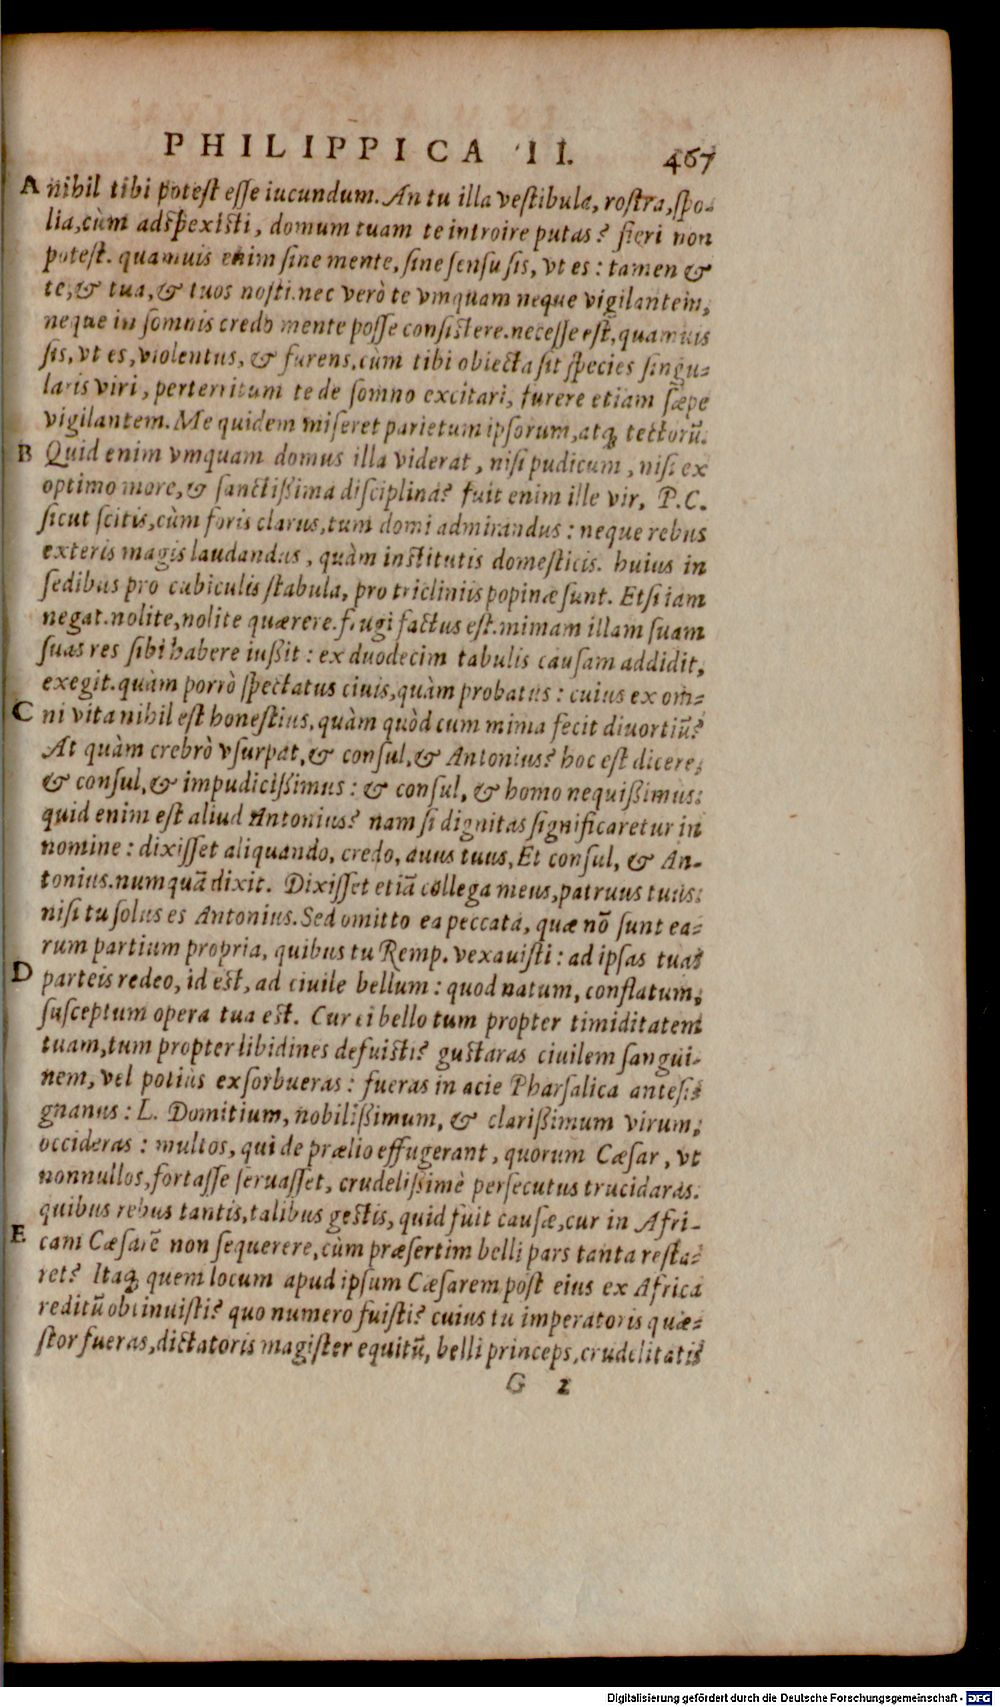 PHILIPPICA II. 467
A nihil tibi potest esse iucundum. An tu illa vestibula, rostra, spo-
lia, cùm adspexisti, domum tuam te introire putas? fieri non
potest. quamuis enim sine mente, sine sensu sis, vt es: tamen &
te, & tua, & tuos nosti. nec verò te vmquam neque vigilantem,
neque in somnis credo mente posse consistere. necesse est, quamuis
sis, vt es, violentus, & furens. cùm tibi obiecta sit species singu-
laris viri, perterritum te de somno excitari, furere etiam sæpe
vigilantem. Me quidem miseret parietum ipsorum, atq; tectorũ.
B Quid enim vmquam domus illa viderat, nisi pudicum, nisi ex
optimo more, & sanctißima disciplina? fuit enim ille vir, P.C.
sicut scitis, cùm foris clarus, tum domi admirandus: neque rebus
exteris magis laudandus, quàm institutis domesticis. huius in
sedibus pro cubiculis stabula, pro tricliniis popinæ sunt. Etsi iam
negat. nolite, nolite quærere. frugi factus est. mimam illam suam
suas res sibi habere iußit: ex duodecim tabulis causam addidit,
exegit. quàm porrò spectatus ciuis, quàm probatus: cuius ex om-
C ni vita nihil est honestius, quàm quòd cum mima fecit diuortiũ?
At quàm crebrò vsurpat, & consul, & Antonius? hoc est dicere,
& consul, & impudicißimus: & consul, & homo nequißimus:
quid enim est aliud Antonius? nam si dignitas significaretur in
nomine: dixisset aliquando, credo, auus tuus, Et consul, & An-
tonius. numquã dixit. Dixisset etiã collega meus, patruus tuus:
nisi tu solus es Antonius. Sed omitto ea peccata, quæ nõ sunt ea-
rum partium propria, quibus tu Remp. vexauisti: ad ipsas tuas
D parteis redeo, id est, ad ciuile bellum: quod natum, conflatum,
susceptum opera tua est. Cur ei bello tum propter timiditatem
tuam, tum propter libidines defuisti? gustaras ciuilem sangui-
nem, vel potius exsorbueras: fueras in acie Pharsalica antesi-
gnanus: L. Domitium, nobilißimum, & clarißimum virum,
occideras: multos, qui de prælio effugerant, quorum Cæsar, vt
nonnullos, fortasse seruasset, crudelißimè persecutus trucidaras.
quibus rebus tantis, talibus gestis, quid fuit causæ, cur in Afri-
E cam Cæsarẽ non sequerere, cùm præsertim belli pars tanta resta-
ret? Itaq; quem locum apud ipsum Cæsarem post eius ex Africa
reditũ obtinuisti? quo numero fuisti? cuius tu imperatoris quæ-
stor fueras, dictatoris magister equitũ, belli princeps, crudelitatis
G 2
Digitalisierung gefördert durch die Deutsche Forschungsgemeinschaft - DFG